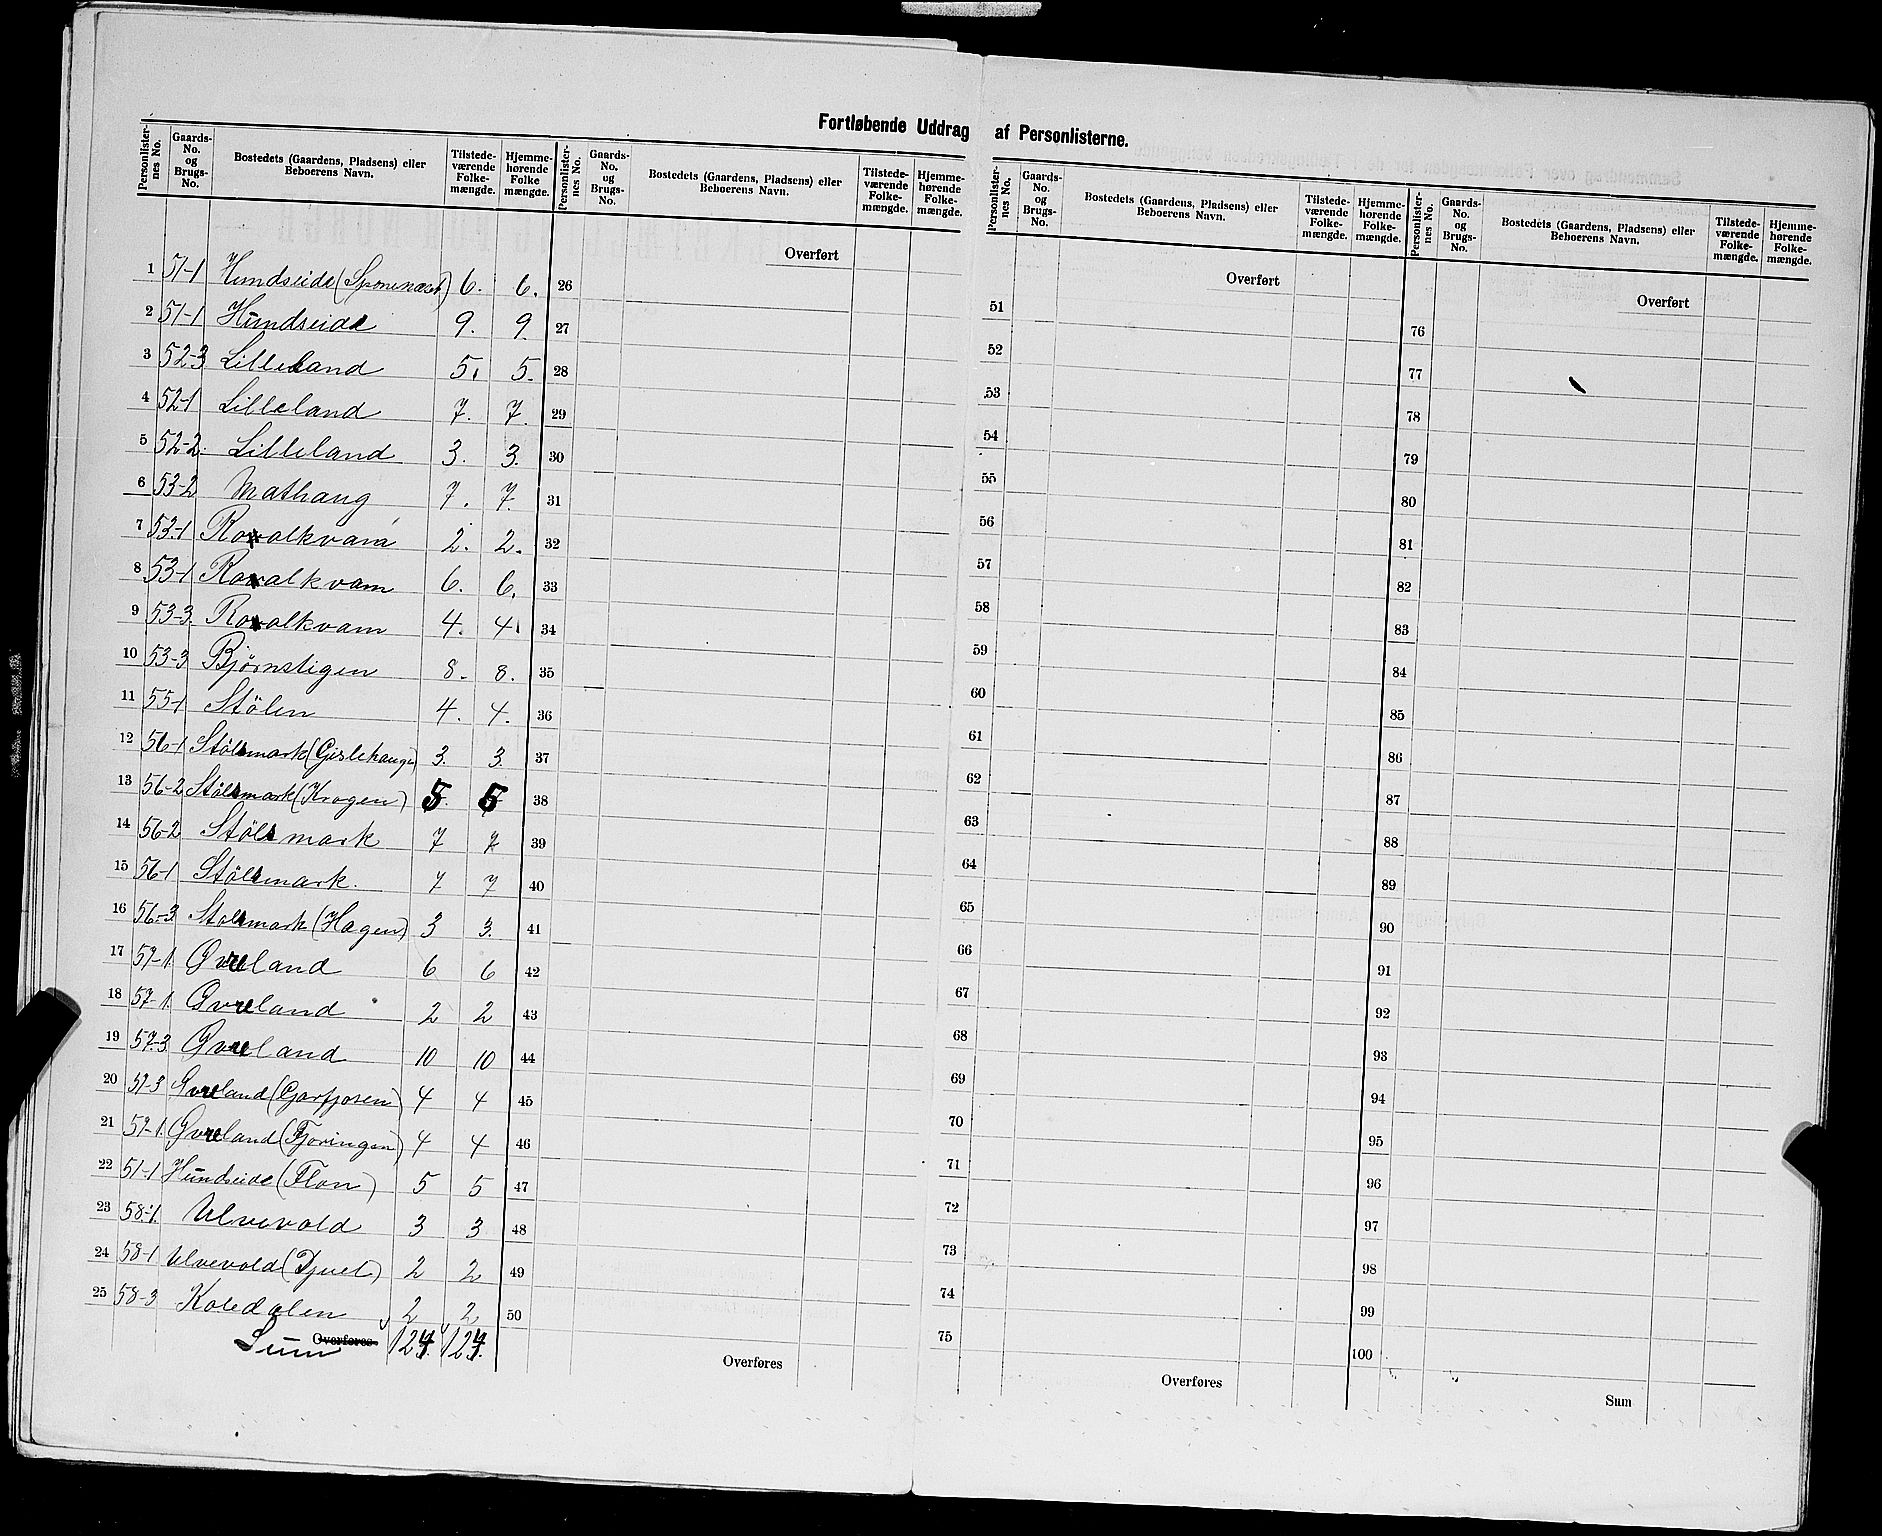 Fortløbende Uddrag af Personlisterne.
Personlisternes No. Gaards-No. og Brugs-No. Bostedets (Gaardens, Pladsens) eller Beboerens Navn. Tilstedeværende Folkemængde. Hjemmehørende Folkemængde.
1 51-1 Hundseide (Sponenæset) 6. 6.
2 51-1 Hundseide 9. 9.
3 52-3 Lilleland 5. 5.
4 52-1 Lilleland 7. 7.
5 52-2. Lilleland 3. 3.
6 53-2 Mathaug 7. 7.
7 53-1 Roalkvam 2. 2.
8 53-1 Roalkvam 6. 6.
9 53-3. Roalkvam 4. 4.
10 53-3 Bjørnstigen 8. 8.
11 55-1 Stölen 4. 4.
12 56-1 Stölsmark (Gislehaugen) 3. 3.
13 56-2 Stölsmark (Krogen) 5 5
14 56-2 Stölsmark 7 7
15 56-1 Stölsmark. 7 7
16 56-3 Stölsmark (Hagen) 3 3.
17 57-1. Øvreland 6 6
18 57-1. Øvreland 2 2
19 57-3 Øvreland 10 10
20 57-3 Øvreland (Garfjosen) 4 4
21 57-1. Øvreland (Fjoringen) 4 4
22 51-1 Hundseide (Flon) 5 5
23 58-1. Ulvevold 3 3
24 58-1 Ulvevold (Djuet) 2 2
25 58-3 Koledalen 2 2
Overføres Sum 124. 124.
Personlisternes No. Gaards-No. og Brugs-No. Bostedets (Gaardens, Pladsens) eller Beboerens Navn. Tilstedeværende Folkemængde. Hjemmehørende Folkemængde.
Overført
26
27
28
29
30
31
32
33
34
35
36
37
38
39
40
41
42
43
44
45
46
47
48
49
50
Overføres
Personlisternes No. Gaards-No. og Brugs-No. Bostedets (Gaardens, Pladsens) eller Beboerens Navn. Tilstedeværende Folkemængde. Hjemmehørende Folkemængde.
Overført
51
52
53
54
55
56
57
58
59
60
61
62
63
64
65
66
67
68
69
70
71
72
73
74
75
Overføres
Personlisternes No. Gaards-No. og Brugs-No. Bostedets (Gaardens, Pladsens) eller Beboerens Navn. Tilstedeværende Folkemængde. Hjemmehørende Folkemængde.
Overført
76
77
78
79
80
81
82
83
84
85
86
87
88
89
90
91
92
93
94
95
96
97
98
99
100
Sum